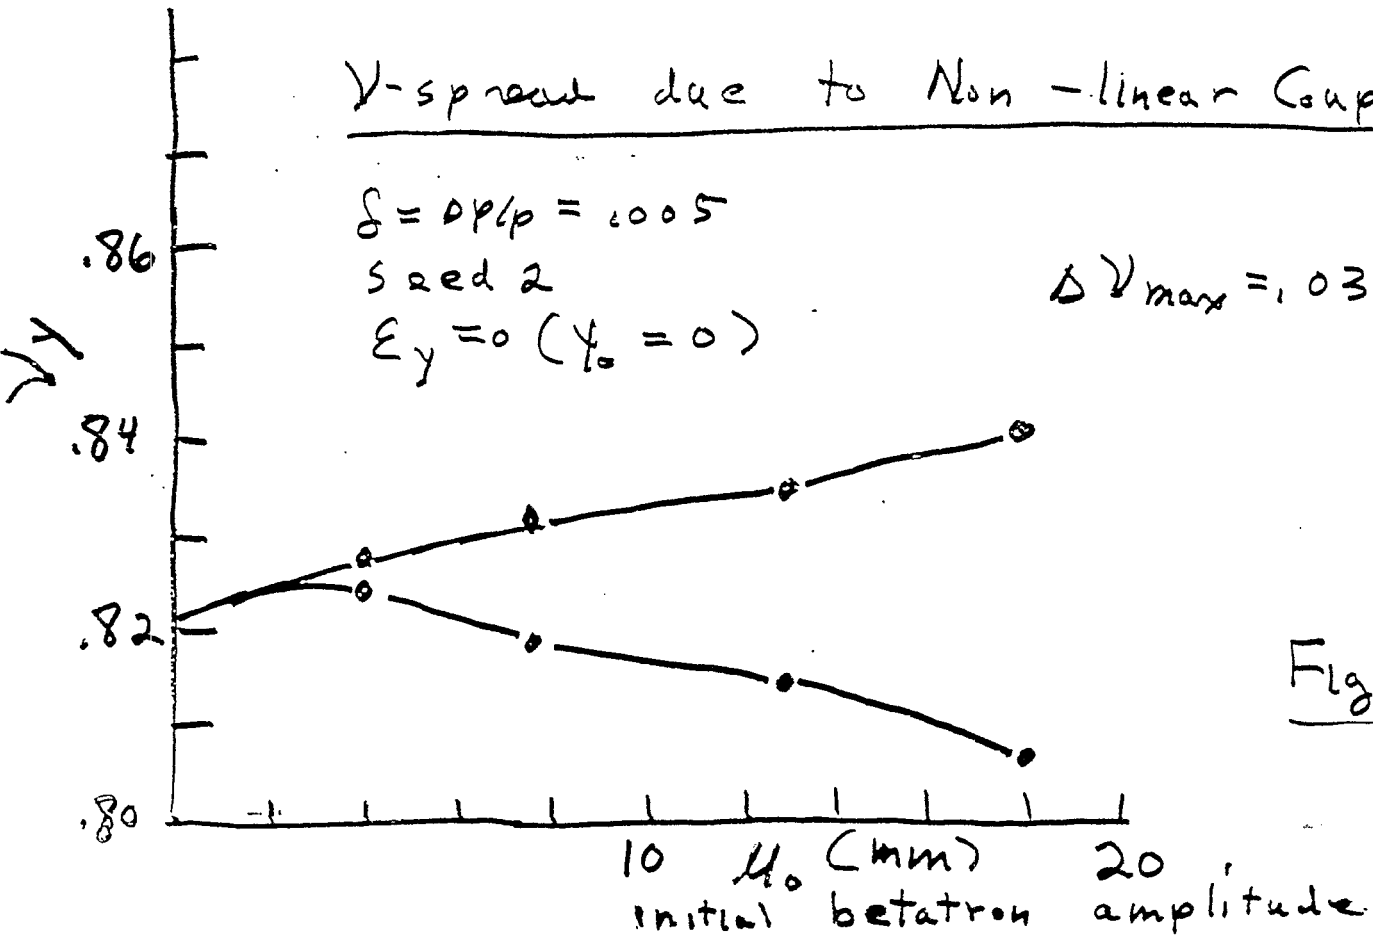 ν-spread due to Non-linear Coup
δ = Δp/p = .005
seed 2
εy = 0 (y₀ = 0)
Δνmax = .03
νy
.86
.84
.82
.80
Fig
10 20
(mm)
initial betatron amplitude